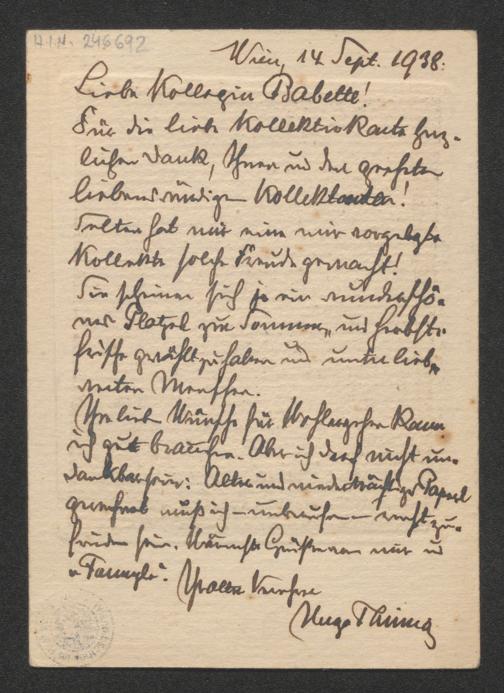 H.I.N. 246692
Wien, 14 Sept. 1938.
Liebe Kollegin Babette!
Für die liebe Kollektivkarte herz-
lichen Dank, Ihnen und den geehrten
liebenswürdigen
Selten hat mir eine mir vorgelegte
Kollekte solche Freude gemacht!
Sie scheinen sich ja ein wunderschö-
nes Platzel zur Sommer- und Herbst-
frische gewählt zu haben und unter lieb-
werten Menschen.
Ihre lieben Wünsche für Wohlergehen kann
ich gut brauchen. Aber ich darf nicht un-
dankbar sein: Alter und niederträchtige
muß ich – unberufen – recht zu-
frieden sein. Wärmste Grüße von mir und
Ihr alter Verehrer
Hugo Thimig